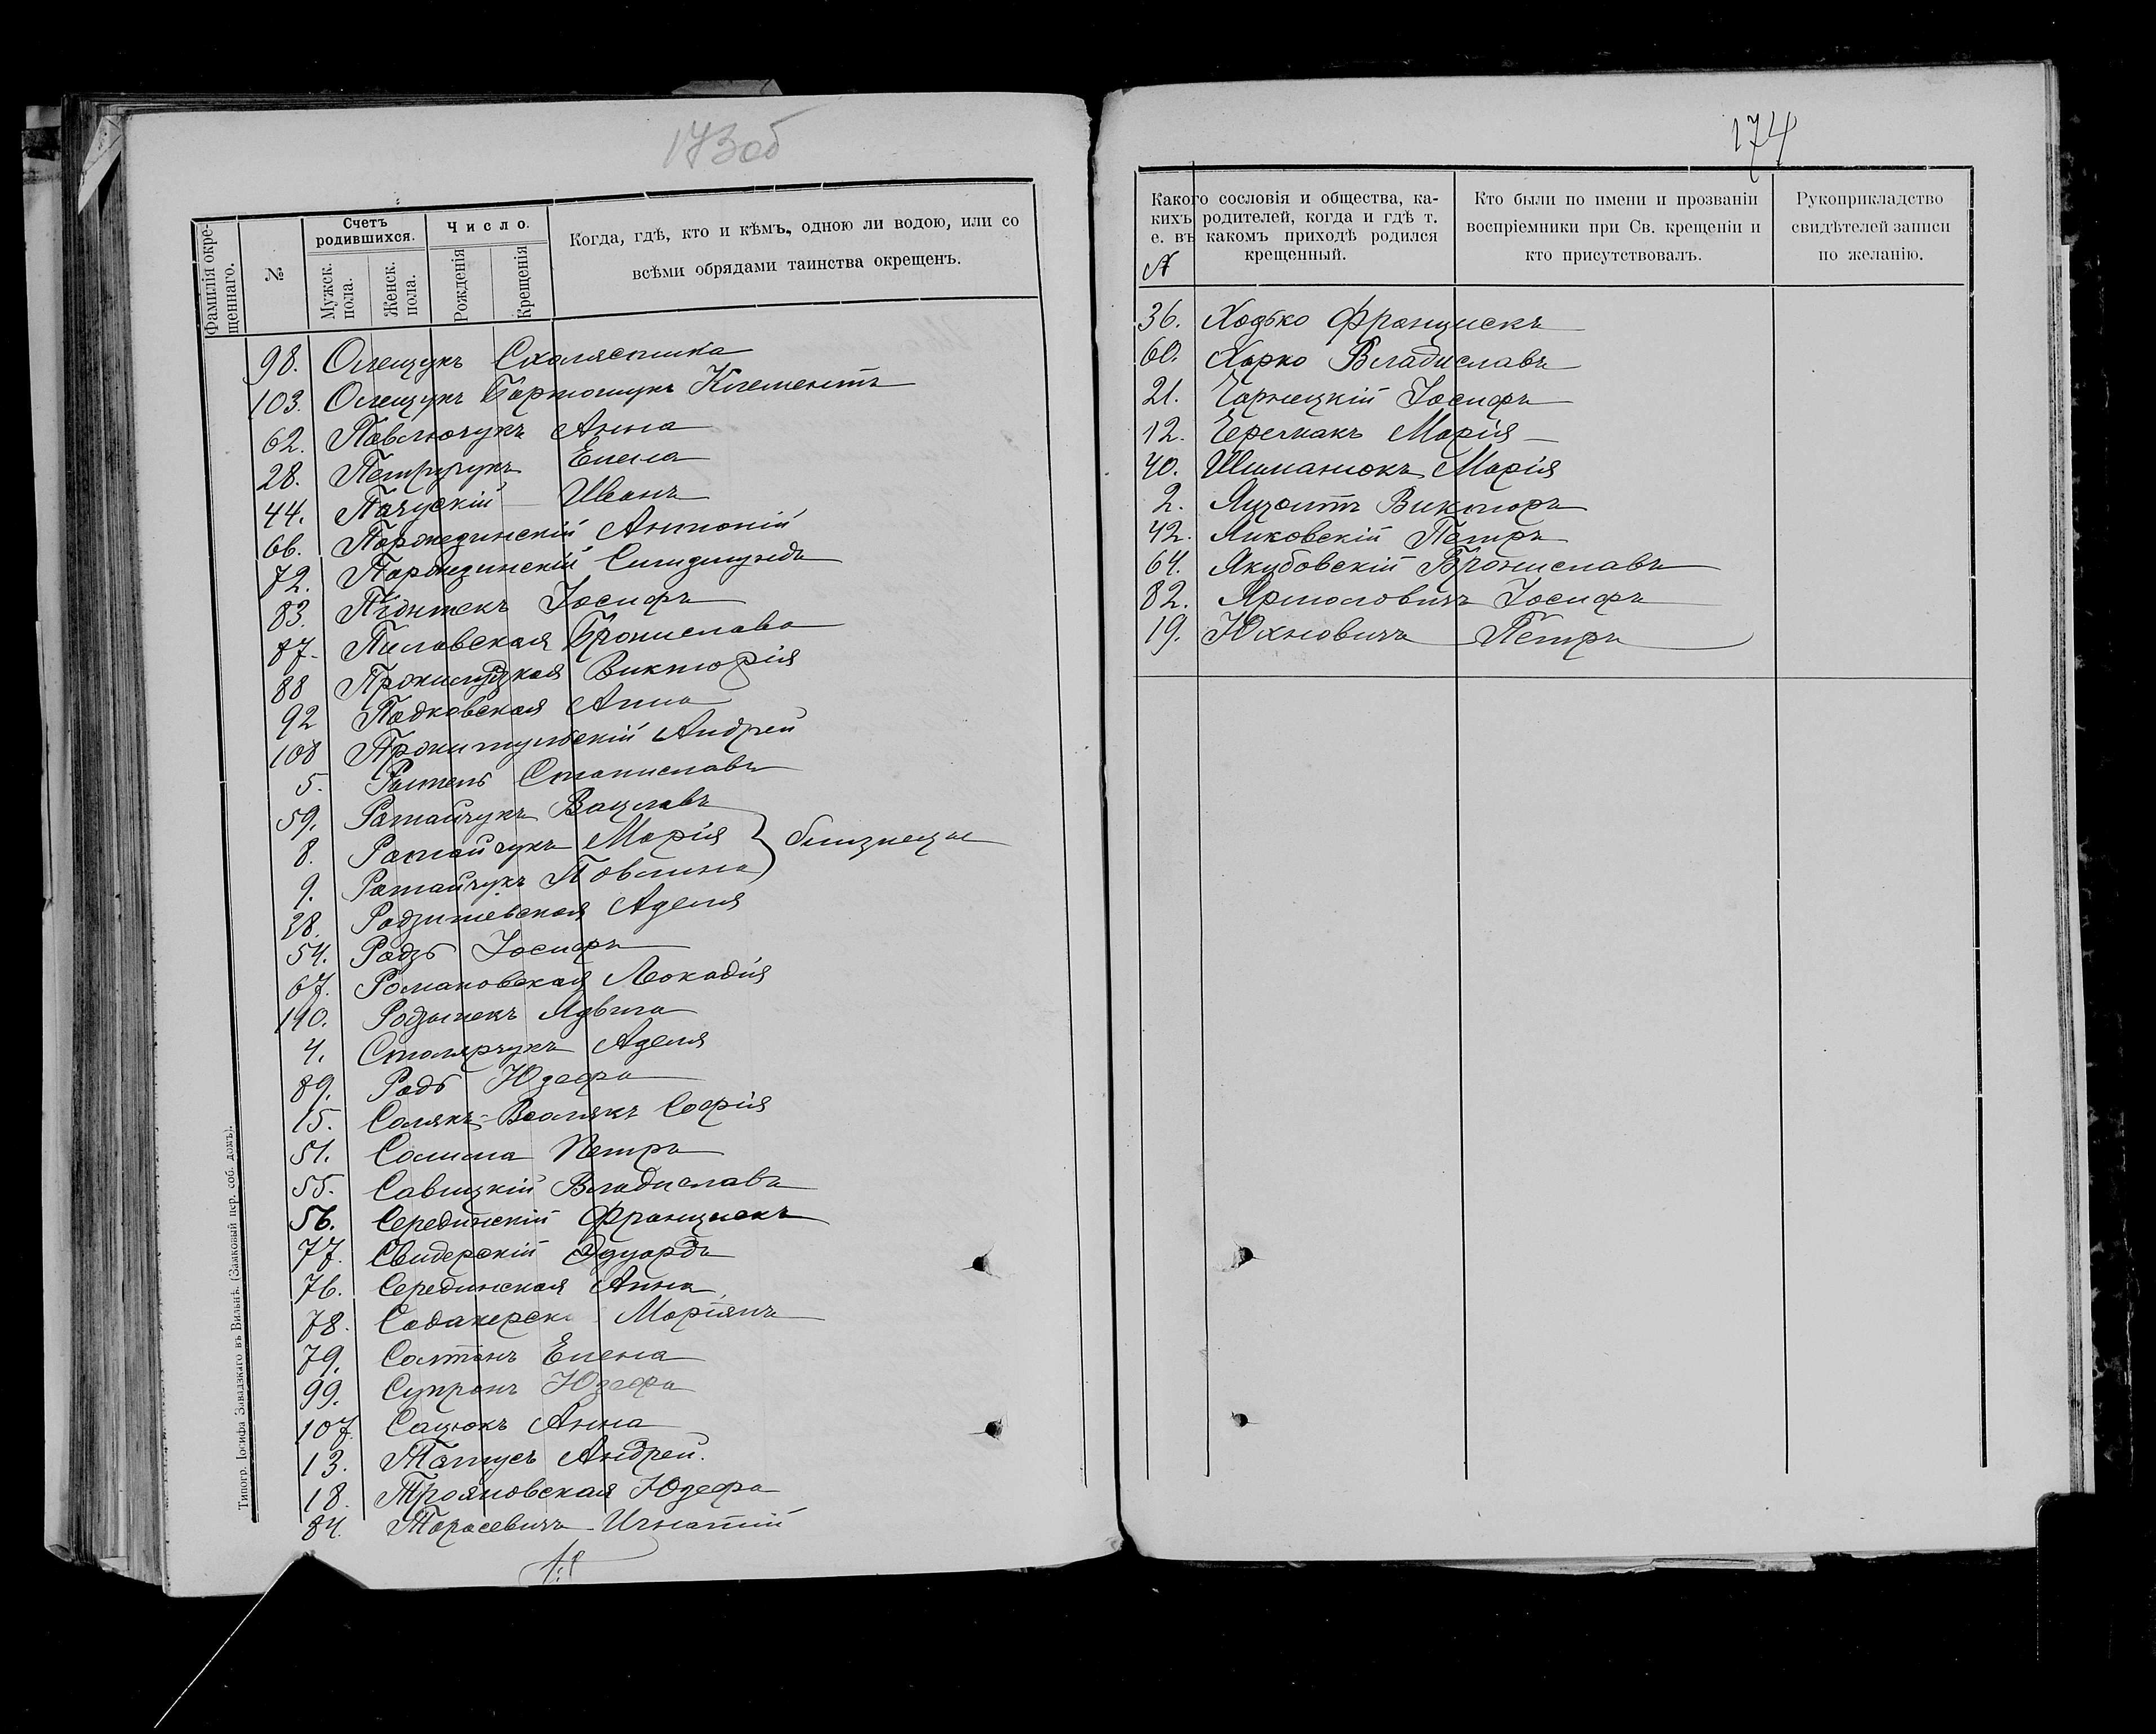 173об
Фамилія окре-
щеннаго.
№
Счетъ
родившихся.
Мужск.
пола.
Женск.
пола.
Число.
Рожденія
Крещенія
Когда, гдѣ, кто и кѣмъ, одною ли водою, или со
всѣми обрядами таинства окрещенъ.
98. Олещукъ Схолястика
103. Олещукъ Бартошукъ Клементъ
62. Павлючукъ Анна
28. Петручукъ Елена
44. Пачускій Иванъ
66. Поржезинскій Антоній
72. Поржезинскій Сигизмундъ
83. Піонтекъ Іосифъ
87. Пилавская Бронислава
88 Виктория
92 Падковская Анна
108 Андрей
5. Рытель Станиславъ
59. Ратайчукъ Вацлавъ
8. Ратайчукъ Марія
9. Ратайчукъ Павлина } близнецы
28. Радзишевская Аделя
54. Радзь Іосифъ
67. Романовская Леокадія
110. Родзынекъ Ядвига
4. Столярчукъ Аделя
89. Радь Юзефа
15. Солякъ-Восолякъ Софія
51. Солила Петръ
55. Савицкій Владиславъ
56. Серединскій Францискъ
77. Свидерскій Эдуардъ
76. Серединская Анна
78. Марiянъ
79. Солтанъ Елена
99. Супронъ Юзефа
107. Сацюкъ Анна
13. Татусь Андрей.
18. Трояновская Юзефа
84. Тарасевичъ Игнатій
Типогр. Іосифа Завадзкаго въ Вильнѣ. (Замковый пер. соб. домъ).
174
Какого сословія и общества, ка-
кихъ родителей, когда и гдѣ т.
е. въ какомъ приходѣ родился
крещенный.
№
Кто были по имени и прозванію
воспріемники при Св. крещеніи и
кто присутствовалъ.
Рукоприкладство
свидѣтелей записи
по желанію.
36. Ходько Францискъ
60. Харко Владиславъ
21. Чарнецкій Іосифъ
12. Черемакъ Марія
40. Шиманюкъ Марія
2. Викторъ
42. Яиковскій Петръ
64. Якубовскій Брониславъ
82. Ярмоловичъ Іосифъ
19. Юхновичъ Петръ